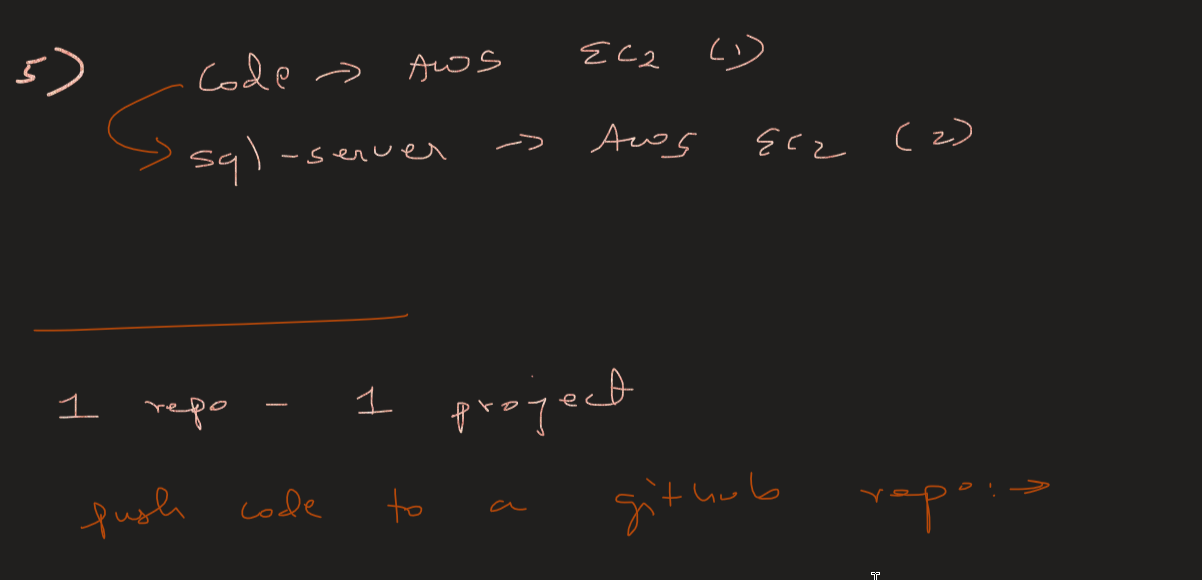 5) Code → AWS EC2 (1)
sql-server → AWS EC2 (2)
1 repo - 1 project
push code to a github repo: →